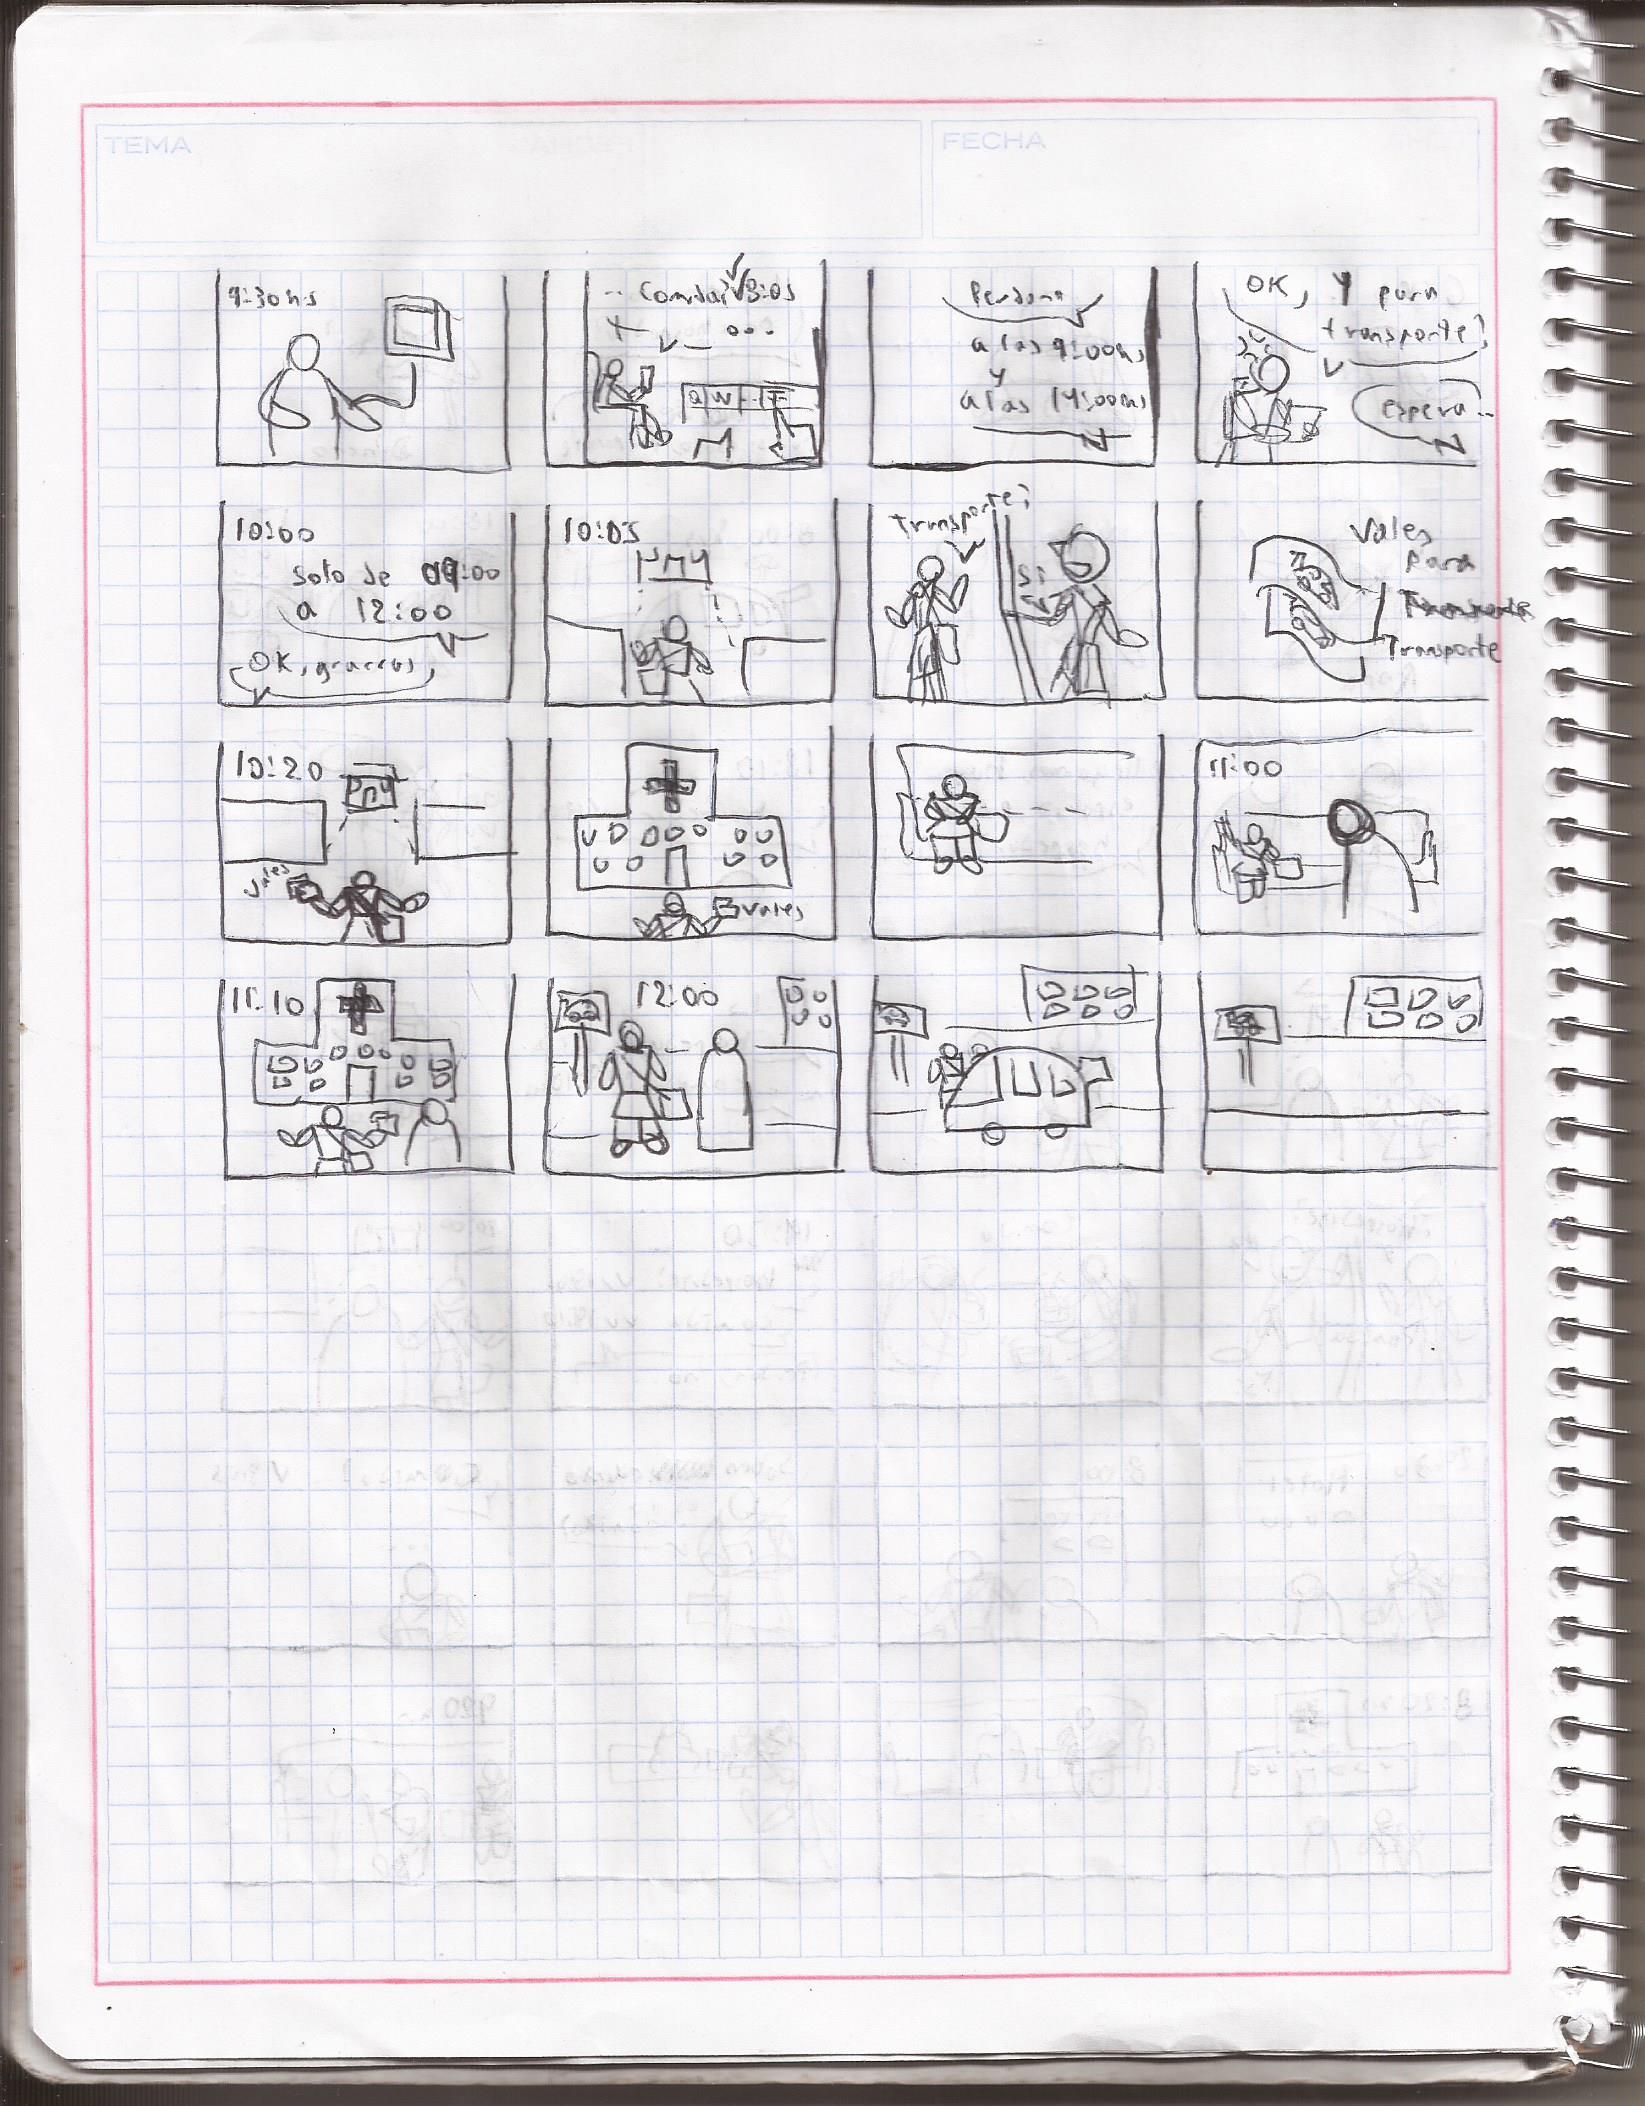 TEMA
FECHA
9:30 hs
Comida?
Perdona
a las 9:00hs
y
a las 14:00hs
OK, y para
transporte?
espera...
10:00
solo de 09:00
a 12:00
OK, gracias,
10:05
transporte?
Si
Vales
para
Transporte
10:20
vales
vales
11:00
11:10
12:00